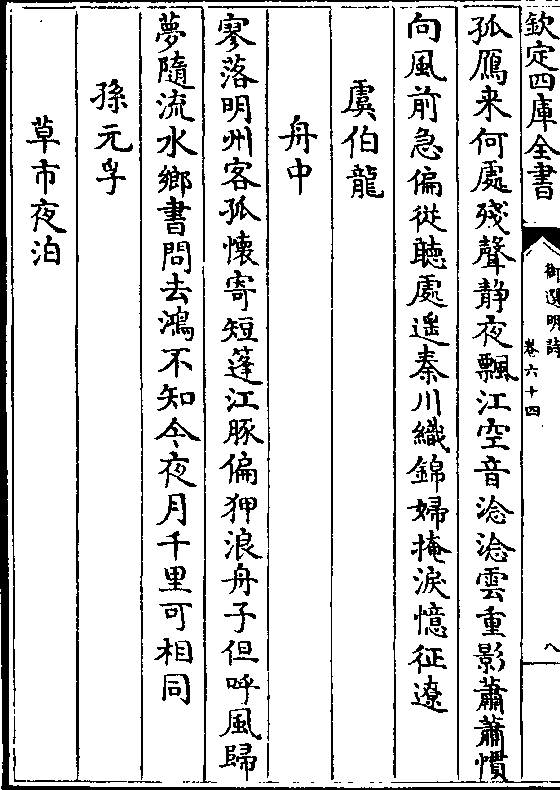 欽定四庫全書
御選明詩
卷六十四
八
孤鴈来何處殘聲静夜飄江空音淰淰雲重影蕭蕭慣
向風前急偏從聴處遥秦川織錦婦掩淚憶征遼
虞伯龍
舟中
寥落明州客孤懷寄短蓬江豚偏狎浪舟子但呼風歸
夢隨流水鄉書問去鴻不知今夜月千里可相同
孫元孚
草市夜泊